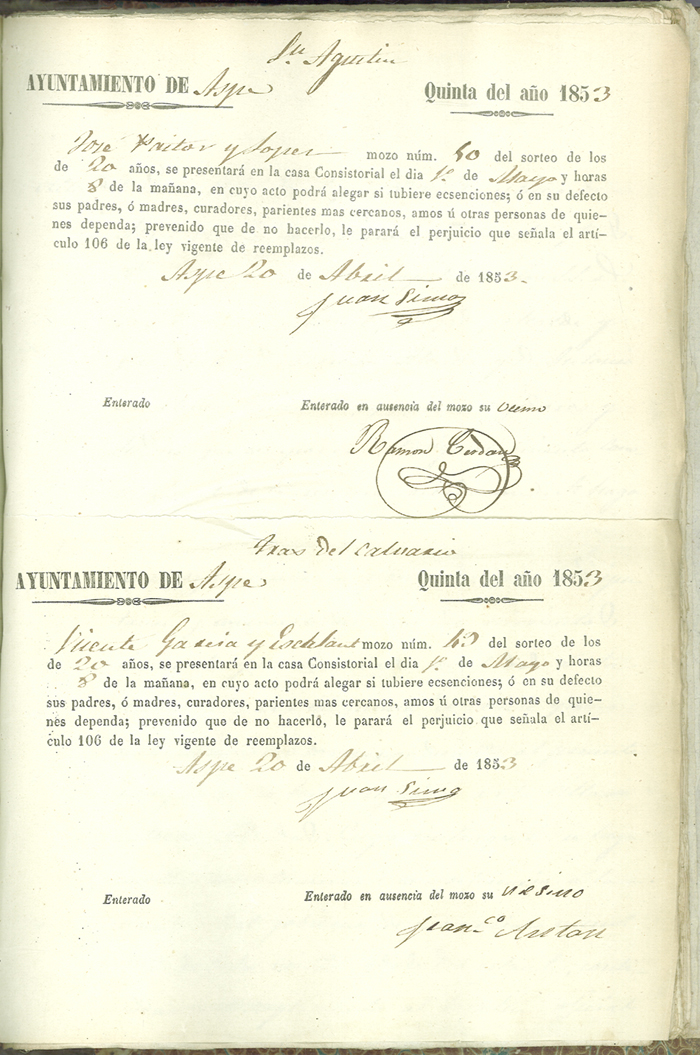 Sn. Agustin
AYUNTAMIENTO DE Aspe Quinta del año 1853
José y Lopez mozo núm. 50 del sorteo de los
de 20 años, se presentará en la casa Consistorial el dia 1º de Mayo y horas
8 de la mañana, en cuyo acto podrá alegar si tubiere ecsenciones; ó en su defecto
sus padres, ó madres, curadores, parientes mas cercanos, amos ú otras personas de quie-
nes dependa; prevenido que de no hacerlo, le parará el perjuicio que señala el artí-
culo 106 de la ley vigente de reemplazos.
Aspe 20 de Abril de 1853.
Juan Simo
Enterado Enterado en ausencia del mozo su
Ramon Cerdan
tras del calvario
AYUNTAMIENTO DE Aspe Quinta del año 1853
Vicente Garcia y mozo núm. del sorteo de los
de 20 años, se presentará en la casa Consistorial el dia 1º de Mayo y horas
8 de la mañana, en cuyo acto podrá alegar si tubiere ecsenciones; ó en su defecto
sus padres, ó madres, curadores, parientes mas cercanos, amos ú otras personas de quie-
nes dependa; prevenido que de no hacerlo, le parará el perjuicio que señala el artí-
culo 106 de la ley vigente de reemplazos.
Aspe 20 de Abril de 1853
Juan Simo
Enterado Enterado en ausencia del mozo su vesino
Franco Anton